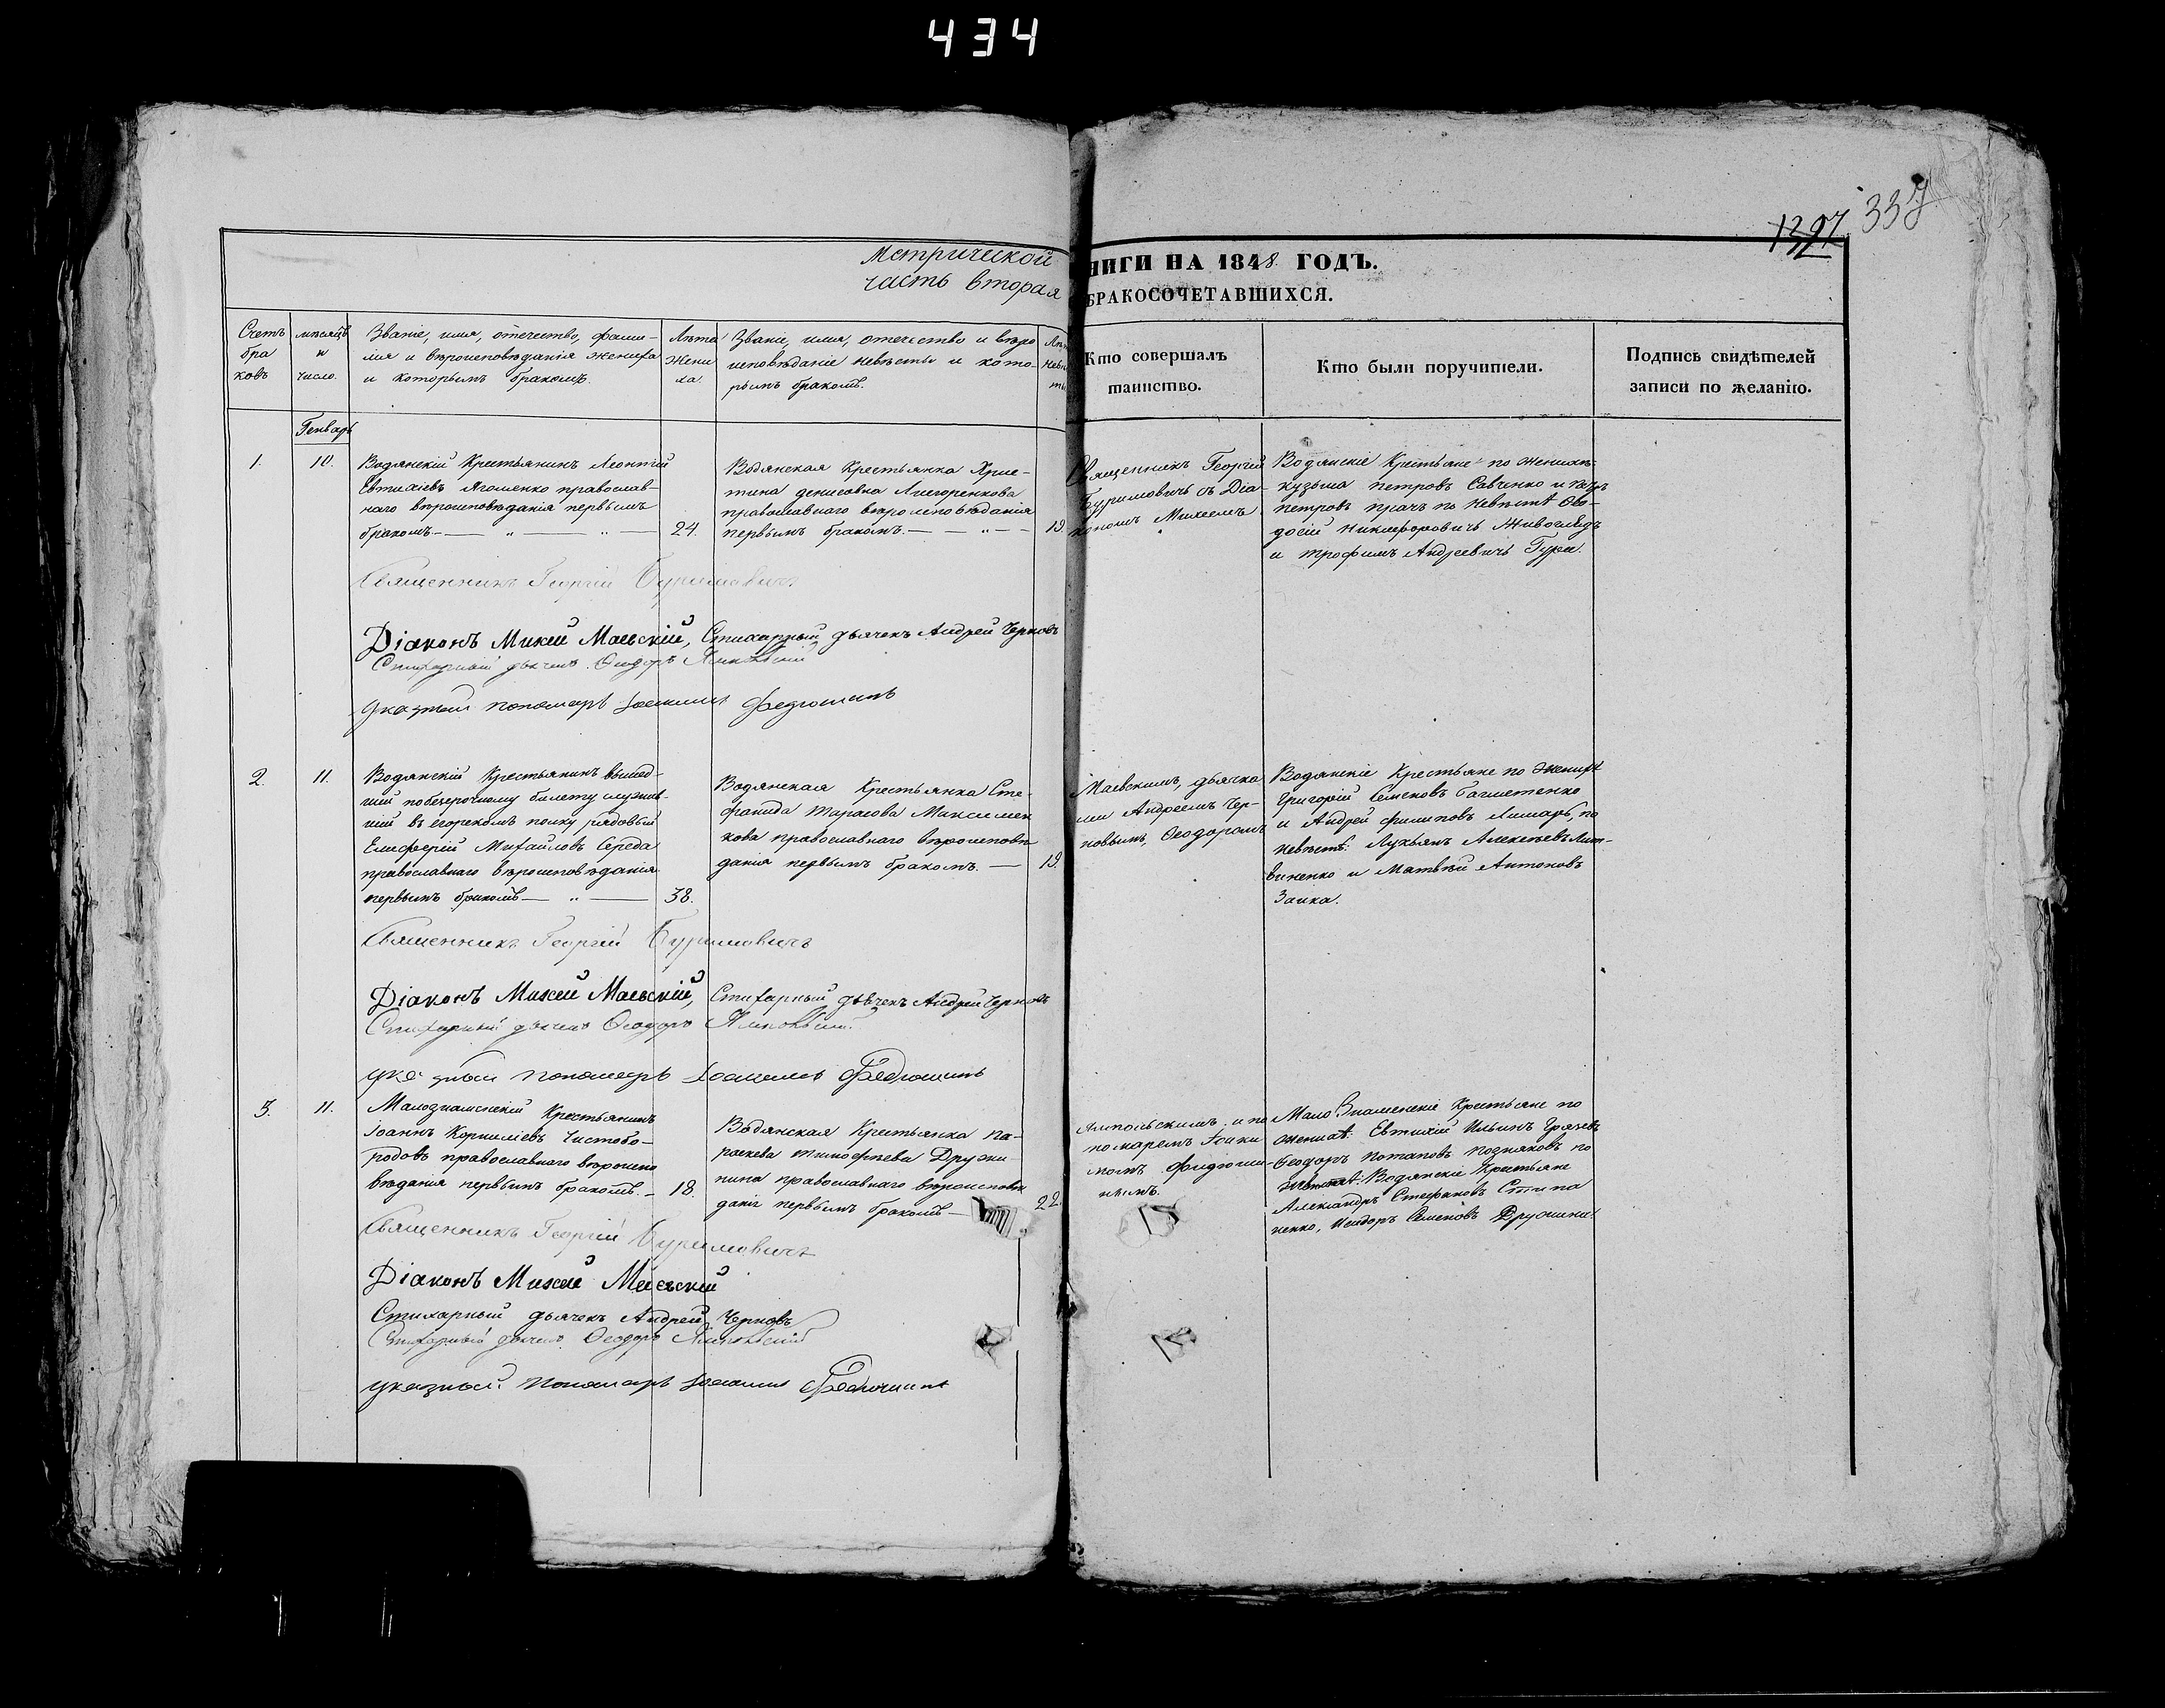 434
1397 337
Метрической
часть вторая
НИГИ НА 1848. ГОДЪ.
БРАКОСОЧЕТАВШИХСЯ.
Счетъ
бра
ковъ
мѣсяцъ
и
число.
Званіе, имя, отечество, фами-
лія и вѣроисповѣданія жениха
и которымъ бракомъ.
Лѣта
Жени
ха.
Званіе, имя, отечество и вѣро
исповѣданіе невѣсты и кото-
рымъ бракомъ.
Кто совершалъ
таинство.
Кто были поручители.
Подпись свидѣтелей
записи по желанію.
Генварь
1.
10.
Водянскій Крестьянинъ Леонтій
Евтихіевъ Ягоменко православ-
наго вѣроисповѣданія первымъ
бракомъ. — „ — „ —
24.
Водянская Крестьянка Хрис-
тина денисовна
православнаго вѣроисповѣданія
первымъ бракомъ. — — „ — —
19.
Священникъ Георгій
Буримовичъ съ Діа-
кономъ Михеемъ
Водянскіе Крестьяне по женихѣ
кузьма петровъ Савченко и
петровъ прачъ по невѣстѣ Ѳео-
досій никифоровичъ Живоглядъ
и трофимъ Андреевичъ Гура.
Священникъ Георгій Буримовичъ
Діаконъ Михей Маевскій, Стихарный дьячекъ Андрей Черновъ
Стихарный дьячекъ Ѳеодоръ Ямпольскій
указный пономарь Іоакимъ Федюшинъ
2.
11.
Водянскій Крестьянинъ вышед-
шій по безсрочному билету служив-
шій въ егорскомъ полку рядовый
Елиферій Михайловъ Середа
православнаго вѣроисповѣданія
первымъ бракомъ — „ —
38.
Водянская Крестьянка Сте-
фанида тарасова Максимен
кова православнаго вѣроисповѣ
данія первымъ бракомъ. —
19.
Маевскимъ, дьячка
ми Андреемъ Чер-
новымъ, Ѳеодоромъ
Водянскіе Крестьяне по женихѣ
Григорій Семеновъ
и Андрей филиповъ Лимарь, по
невѣстѣ: Лукьянъ Алексѣевъ Лит-
виненко и Матвѣй Антоновъ
Заика.
Священникъ Георгій Буримовичъ
Діаконъ Михей Маевскій, Стихарный дьячекъ Андрей Черновъ
Стихарный дьячекъ Ѳеодоръ Ямпольскій
указный пономарь Іоакимъ Федюшинъ
3.
11.
Малознаменскій Крестьянинъ
Іоаннъ Корниліевъ Чистобо-
родовъ православнаго вѣроиспо
вѣданія первымъ бракомъ. —
18.
Водянская Крестьянка па-
раскева тимофѣева Дружи-
нина православнаго вѣроисповѣ
данія первымъ бракомъ —
22.
Ямпольскимъ и по
номаремъ Іоаки
момъ Федюши-
нымъ.
Мало Знаменскіе Крестьяне по
женихѣ: Евтихій Ильинъ
Ѳеодоръ Потаповъ Позняковъ по
невѣстѣ: Водянскіе Крестьяне
Александръ Стефановъ Степа
ненко, Исидоръ Семеновъ Дружини
Священникъ Георгій Буримовичъ
Діаконъ Михей Маевскій
Стихарный дьячекъ Андрей Черновъ
Стихарный дьячекъ Ѳеодоръ Ямпольскій
указный пономарь Іоакимъ Федюшинъ